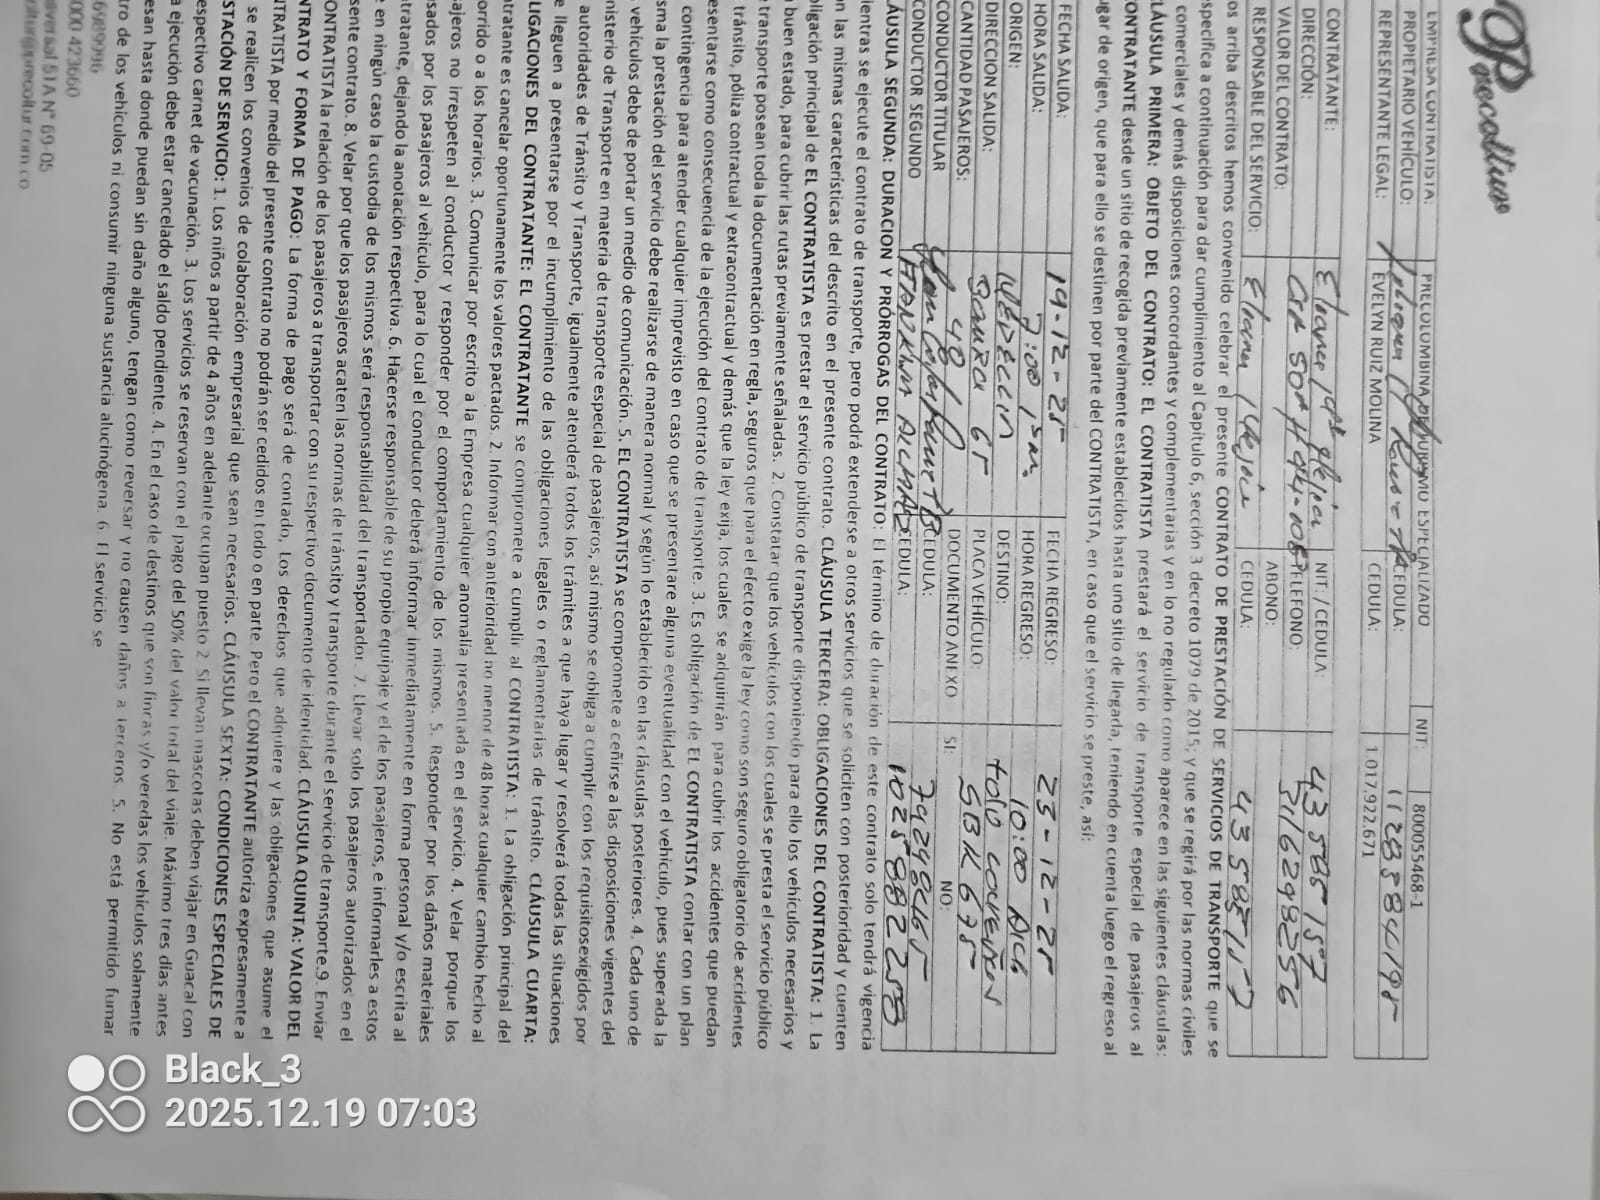 Precoltur
EMPRESA CONTRATISTA: PRECOLOMBINA DE TURISMO ESPECIALIZADO NIT: 800055468-1
PROPIETARIO VEHÍCULO: CEDULA:
REPRESENTANTE LEGAL: EVELYN RUIZ MOLINA CEDULA: 1.017.922.671
CONTRATANTE: NIT: /CEDULA: 43585157
DIRECCIÓN: TELEFONO: 3162948256
VALOR DEL CONTRATO: ABONO:
RESPONSABLE DEL SERVICIO: CEDULA: 43585157
os arriba descritos hemos convenido celebrar el presente CONTRATO DE PRESTACIÓN DE SERVICIOS DE TRANSPORTE que se
specifica a continuación para dar cumplimiento al Capítulo 6, sección 3 decreto 1079 de 2015; y que se regirá por las normas civiles
comerciales y demás disposiciones concordantes y complementarias y en lo no regulado como aparece en las siguientes cláusulas:
LÁUSULA PRIMERA: OBJETO DEL CONTRATO: EL CONTRATISTA prestará el servicio de transporte especial de pasajeros al
CONTRATANTE desde un sitio de recogida previamente establecidos hasta uno sitio de llegada, teniendo en cuenta luego el regreso al
ugar de origen, que para ello se destinen por parte del CONTRATISTA, en caso que el servicio se preste, así:
FECHA SALIDA: 19-12-25 FECHA REGRESO: 23-12-25
HORA SALIDA: 7:00 HORA REGRESO: 10:00
ORIGEN: MEDELLIN DESTINO: TOLU COVEÑAS
DIRECCION SALIDA: PLACA VEHÍCULO:
CANTIDAD PASAJEROS: 40 DOCUMENTO ANEXO SI: NO:
CONDUCTOR TITULAR CEDULA:
CONDUCTOR SEGUNDO CEDULA:
LÁUSULA SEGUNDA: DURACION Y PRÓRROGAS DEL CONTRATO: El término de duración de este contrato solo tendrá vigencia
ientras se ejecute el contrato de transporte, pero podrá extenderse a otros servicios que se soliciten con posterioridad y cuenten
on las mismas características del descrito en el presente contrato. CLÁUSULA TERCERA: OBLIGACIONES DEL CONTRATISTA: 1. La
bligación principal de EL CONTRATISTA es prestar el servicio público de transporte disponiendo para ello los vehículos necesarios y
n buen estado, para cubrir las rutas previamente señaladas. 2. Constatar que los vehículos con los cuales se presta el servicio público
e transporte posean toda la documentación en regla, seguros que para el efecto exige la ley como son seguro obligatorio de accidentes
tránsito, póliza contractual y extracontractual y demás que la ley exija, los cuales se adquirirán para cubrir los accidentes que puedan
esentarse como consecuencia de la ejecución del contrato de transporte. 3. Es obligación de EL CONTRATISTA contar con un plan
contingencia para atender cualquier imprevisto en caso que se presentare alguna eventualidad con el vehículo, pues superada la
sma la prestación del servicio debe realizarse de manera normal y según lo establecido en las cláusulas posteriores. 4. Cada uno de
vehículos debe de portar un medio de comunicación. 5. EL CONTRATISTA se compromete a ceñirse a las disposiciones vigentes del
nisterio de Transporte en materia de transporte especial de pasajeros, así mismo se obliga a cumplir con los requisitosexigidos por
autoridades de Tránsito y Transporte, igualmente atenderá todos los trámites a que haya lugar y resolverá todas las situaciones
e lleguen a presentarse por el incumplimiento de las obligaciones legales o reglamentarias de tránsito. CLÁUSULA CUARTA:
LIGACIONES DEL CONTRATANTE: EL CONTRATANTE se compromete a cumplir al CONTRATISTA: 1. La obligación principal del
ntratante es cancelar oportunamente los valores pactados. 2. Informar con anterioridad no menor de 48 horas cualquier cambio hecho al
orrido o a los horarios. 3. Comunicar por escrito a la Empresa cualquier anomalía presentada en el servicio. 4. Velar porque los
ajeros no irrespeten al conductor y responder por el comportamiento de los mismos. 5. Responder por los daños materiales
sados por los pasajeros al vehículo, para lo cual el conductor deberá informar inmediatamente en forma personal y/o escrita al
tratante, dejando la anotación respectiva. 6. Hacerse responsable de su propio equipaje y el de los pasajeros, e informarles a estos
e en ningún caso la custodia de los mismos será responsabilidad del transportador. 7. Llevar solo los pasajeros autorizados en el
sente contrato. 8. Velar por que los pasajeros acaten las normas de tránsito y transporte durante el servicio de transporte.9. Enviar
ONTRATISTA la relación de los pasajeros a transportar con su respectivo documento de identidad. CLÁUSULA QUINTA: VALOR DEL
NTRATO Y FORMA DE PAGO: La forma de pago será de contado, Los derechos que adquiere y las obligaciones que asume el
NTRATISTA por medio del presente contrato no podrán ser cedidos en todo o en parte. Pero el CONTRATANTE autoriza expresamente a
se realicen los convenios de colaboración empresarial que sean necesarios. CLÁUSULA SEXTA: CONDICIONES ESPECIALES DE
STACIÓN DE SERVICIO: 1. Los niños a partir de 4 años en adelante ocupan puesto 2. Si llevan mascotas deben viajar en Guacal con
espectivo carnet de vacunación. 3. Los servicios se reservan con el pago del 50% del valor total del viaje. Máximo tres dias antes
a ejecución debe estar cancelado el saldo pendiente. 4. En el caso de destinos que son fincas y/o veredas los vehículos solamente
esan hasta donde puedan sin daño alguno, tengan como reversar y no causen daños a terceros. 5. No está permitido fumar
tro de los vehículos ni consumir ninguna sustancia alucinógena. 6. El servicio se
6989996
000 423660
nsversal 51A N° 69-05
coltur@precoltur.com.co
Black_3
2025.12.19 07:03